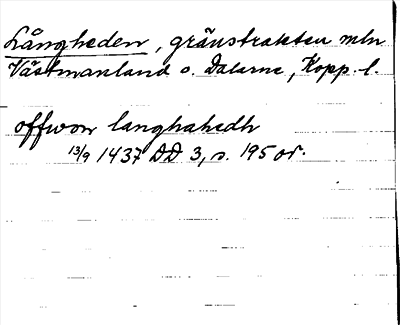 Långheden, gränstrakten mln
Västmanland o. Dalarne, Kopp. l.
offwor langhahedh
13/9 1437 DD 3, s. 195 or.